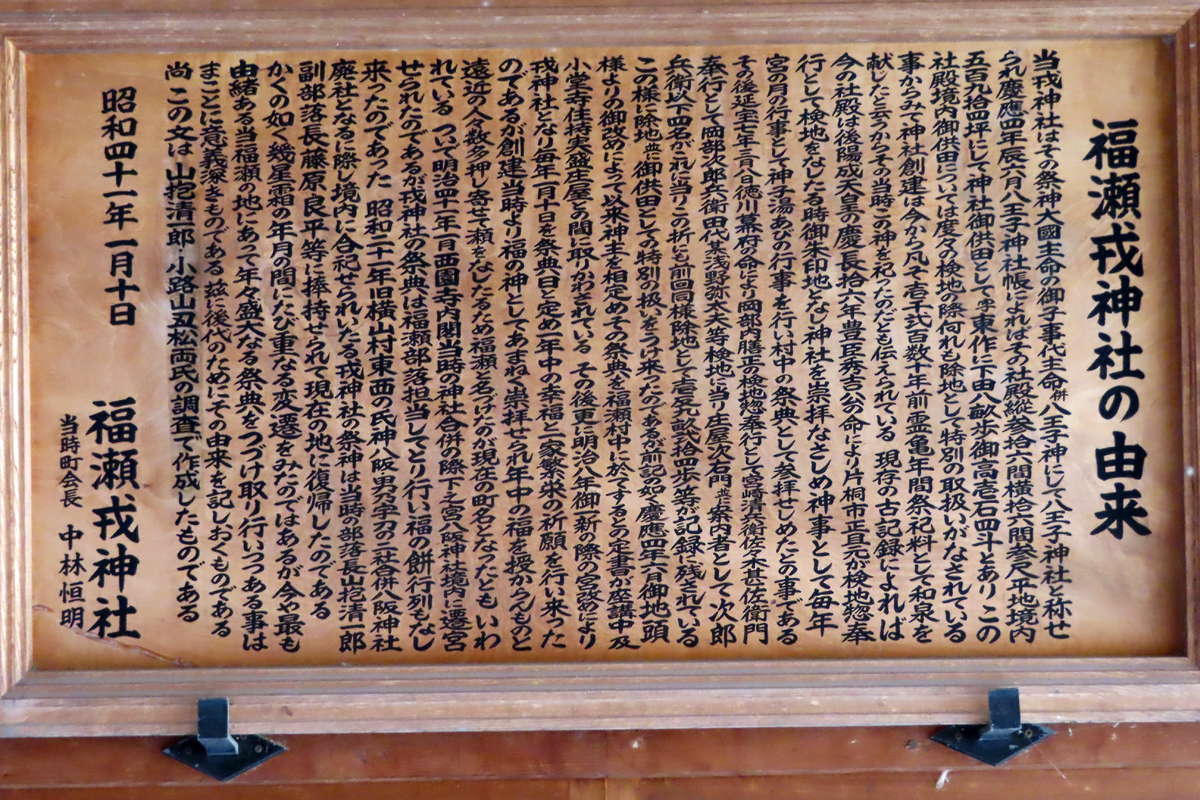 福瀬戎神社の由来
当戎神社はその祭神大國主命の御子事代主命併八王子神にして八王子神社と称せ
られ慶應四年辰六月八王子神社帳によればその社殿縦参拾六間横拾六間参尺平地境内
五百九拾四坪にして神社御供田として字東作に下田八畝歩御高壱石四斗とあり この
社殿境内御供田については度々の検地の際何れも除地として特別の取扱いがなされている
事からみて神社創建は今から凡そ壱千弐百数十年前霊亀年間祭祀料として和泉を
献じたと云うからその当時この神を祀ったのだとも伝えられている 現存の古記録によれば
今の社殿は後陽成天皇の慶長拾六年豊臣秀吉公の命により片桐市正且元が検地惣奉
行として検地をなしたる時御朱印地となり神社を崇拝なさしめ神事として毎年
宮の月の行事として神子湯あびの行事を行い村中の祭典として参拝せしめたとの事である
その後延宝七年二月八日徳川幕府の命により岡部内膳正の検地惣奉行として宮崎清兵衛佐々木甚佐衛門
奉行として岡部次郎兵衛田代某浅野弥太夫等検地に当り庄屋次右門並に案内者として次郎
兵衛以下四名がこれに当りこの折にも前回同様除地として壱反九畝弐拾四歩等が記録に残されている
この様に除地並に御供田としての特別の扱いをうけ来ったのであるが前記の如く慶應四年六月御地頭
様よりの御改めによって以来神主を相定めその祭典を福瀬村中に於てするとの定書が座講中及
小堂寺住持実盛庄屋との間に取りかわされている その後更に明治八年御一新の際の宮改めにより
戎神社となり毎年一月十日を祭典日と定め一年中の幸福と一家繁栄の祈願を行い来った
のであるが創建当時より福の神としてあまねく崇拝せられ年中の福を授からんものと
遠近の人々数多押し寄せて瀬をなしたるため福瀬と名づけたのが現在の町名となったともいわ
れている ついで明治四十一年一月西園寺内閣当時の神社合併の際下之宮八阪神社境内に遷宮
せられたのであるが戎神社の祭典は福瀬部落担当してとり行い福の餅行列もなし
来ったのであった 昭和二十一年旧横山村東西の氏神八阪男乃宇刀の二社合併八阪神社
廃社となるに際し境内に合祀せられいたる戎神社の祭神は当時の部落長山抱清一郎
副部落長藤原良平等に捧持せられて現在の地に復帰したのである
かくの如く幾星霜の年月の間にたび重なる変遷をみたのではあるが今や最も
由緒ある当福瀬の地にあって年々盛大なる祭典をつづけ取り行いつつある事は
まことに意義深きものである 茲に後代のためにその由来を記しおくものである
尚 この文は 山抱清一郎・小路山丑松両氏の調査で作成したものである
昭和四十一年一月十日
福瀬戎神社
当時町会長 中林恒明